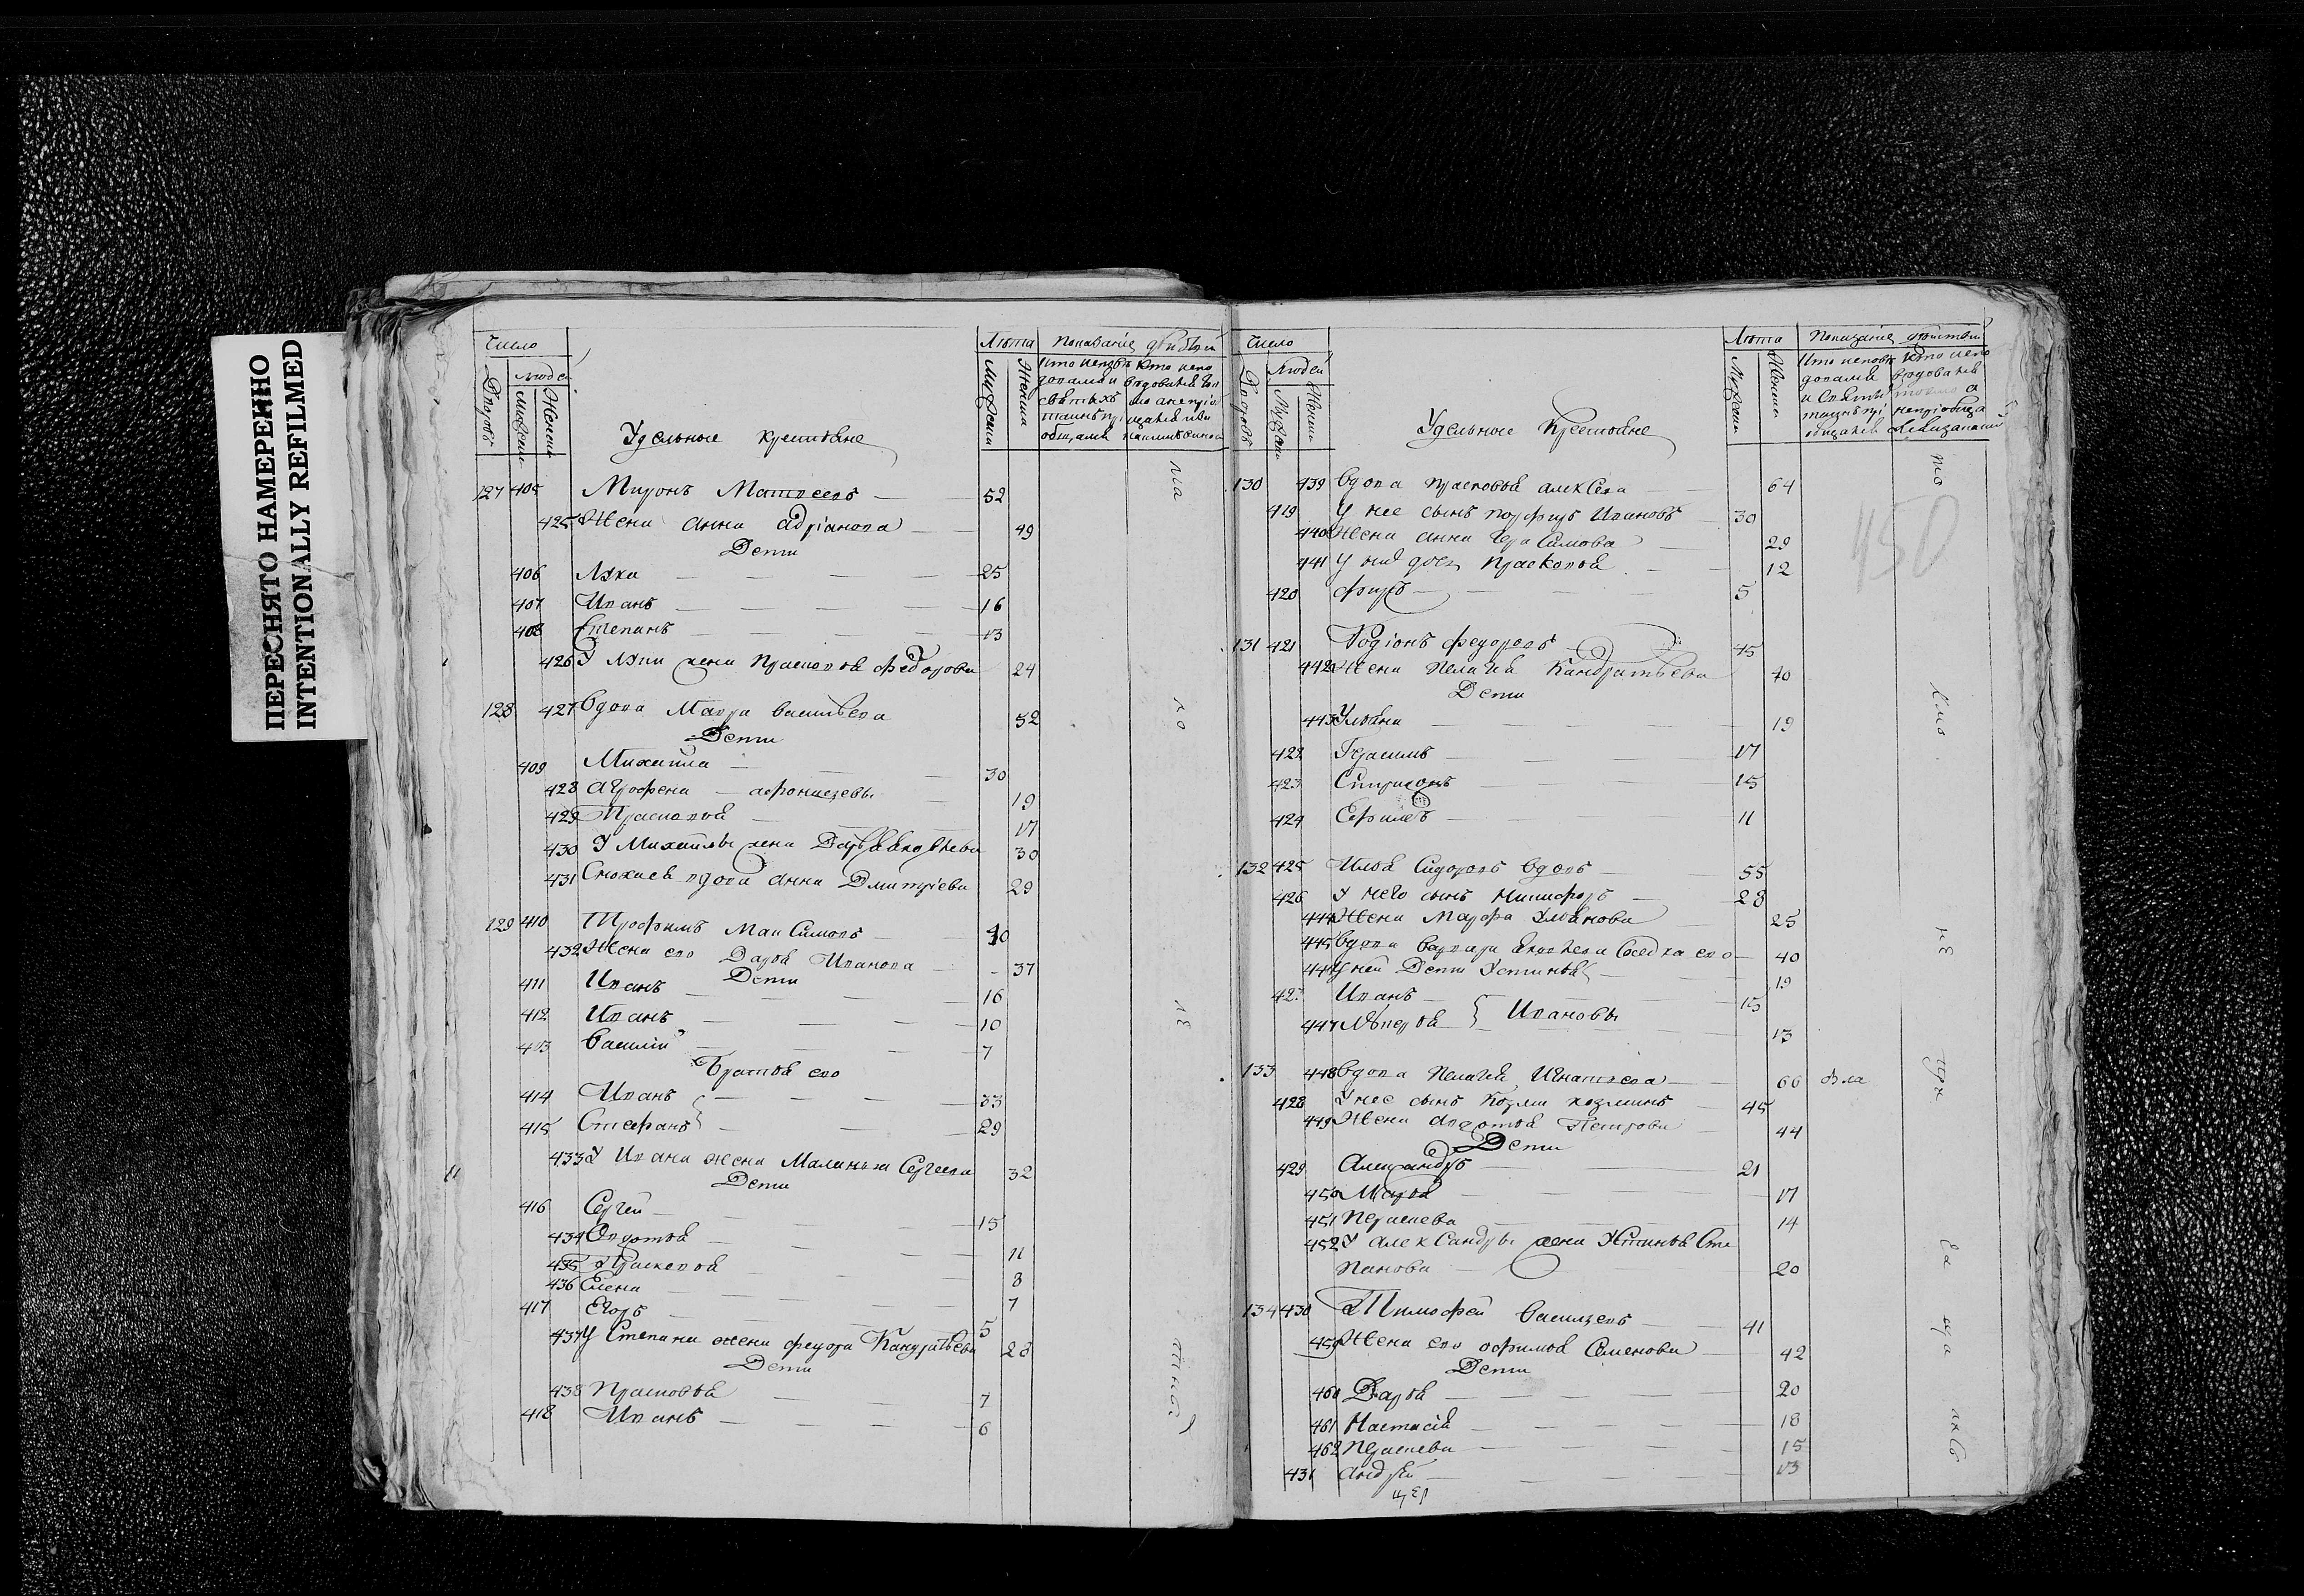 ПЕРЕСНЯТО НАМЕРЕННО
INTENTIONALLY REFILMED
Число
Людей
Дворовъ
Мужеска
Женска
Удельные крестьяне
Лѣта
Мужеска
Женска
Показанiе
127 405 Миронъ Матвеевъ 52
425 Жена Анна Адрiанова 49
Дети
406 Лука 25
407 Иванъ 16
408 Степанъ 13
426 У Луки жена Прасковья Федорова 24
128 427 Вдова Мавра Васильева 52
Дети
409 Михаила 30
428 Агрофена 19
429 Прасковья 17
430 У Михайлы жена Дарья Яковлева 30
431 Сноха ея вдова Анна Дмитрiева 29
129 410 Трофимъ Максимовъ 40
432 Жена его Дарья Иванова 37
Дети
411 Иванъ 16
412 Иванъ 10
413 Василiй 7
Братья его
414 Иванъ 33
415 Стефанъ 29
433 У Ивана жена Маланья Сергеева 32
Дети
416 Сергей 15
434 Авдотья 11
435 Прасковья 8
436 Елена 7
417 Егоръ 5
437 У Степана жена Федора Кандратьева 28
Дети
438 Прасковья 7
418 Иванъ 6
Число
Людей
Дворовъ
Мужеска
Женска
Удельные Крестьяне
Лѣта
Мужеска
Женска
Показанiе
450
130 439 Вдова Прасковья Алексева 64
419 У нее сынъ Порфиръ Ивановъ 30
440 Жена Анна Герасимова 29
441 У них дочь Прасковья 12
420 Фирсъ 5
131 421 Родiонъ Федоровъ 45
442 Жена Пелагея Кандратьева 40
Дети
443 Ульяна 19
422 Герасимъ 17
423 Спиридонъ 15
424 Ефимъ 11
132 425 Илья Сидоровъ вдовъ 55
426 У него сынъ Никифоръ 28
444 Жена Марфа Ульянова 25
445 Вдова Варвара Яковлева соседка его 40
446 У ней Дети Устинья 19
427 Иванъ 15
447 Лукерья Ивановы 13
133 448 Вдова Пелагея Игнатьева 66
428 У нее сынъ Козма Козминъ 45
449 Жена Авдотья Петрова 44
Дети
429 Александръ 21
450 Марья 17
451 Парасиева 14
452 У Александры жена Устинья Сте
панова 20
134 430 Тимофей Васильевъ 41
459 Жена его Офимья Семенова 42
Дети
460 Дарья 20
461 Настасiя 18
462 Парасиева 15
431 Андрей 13